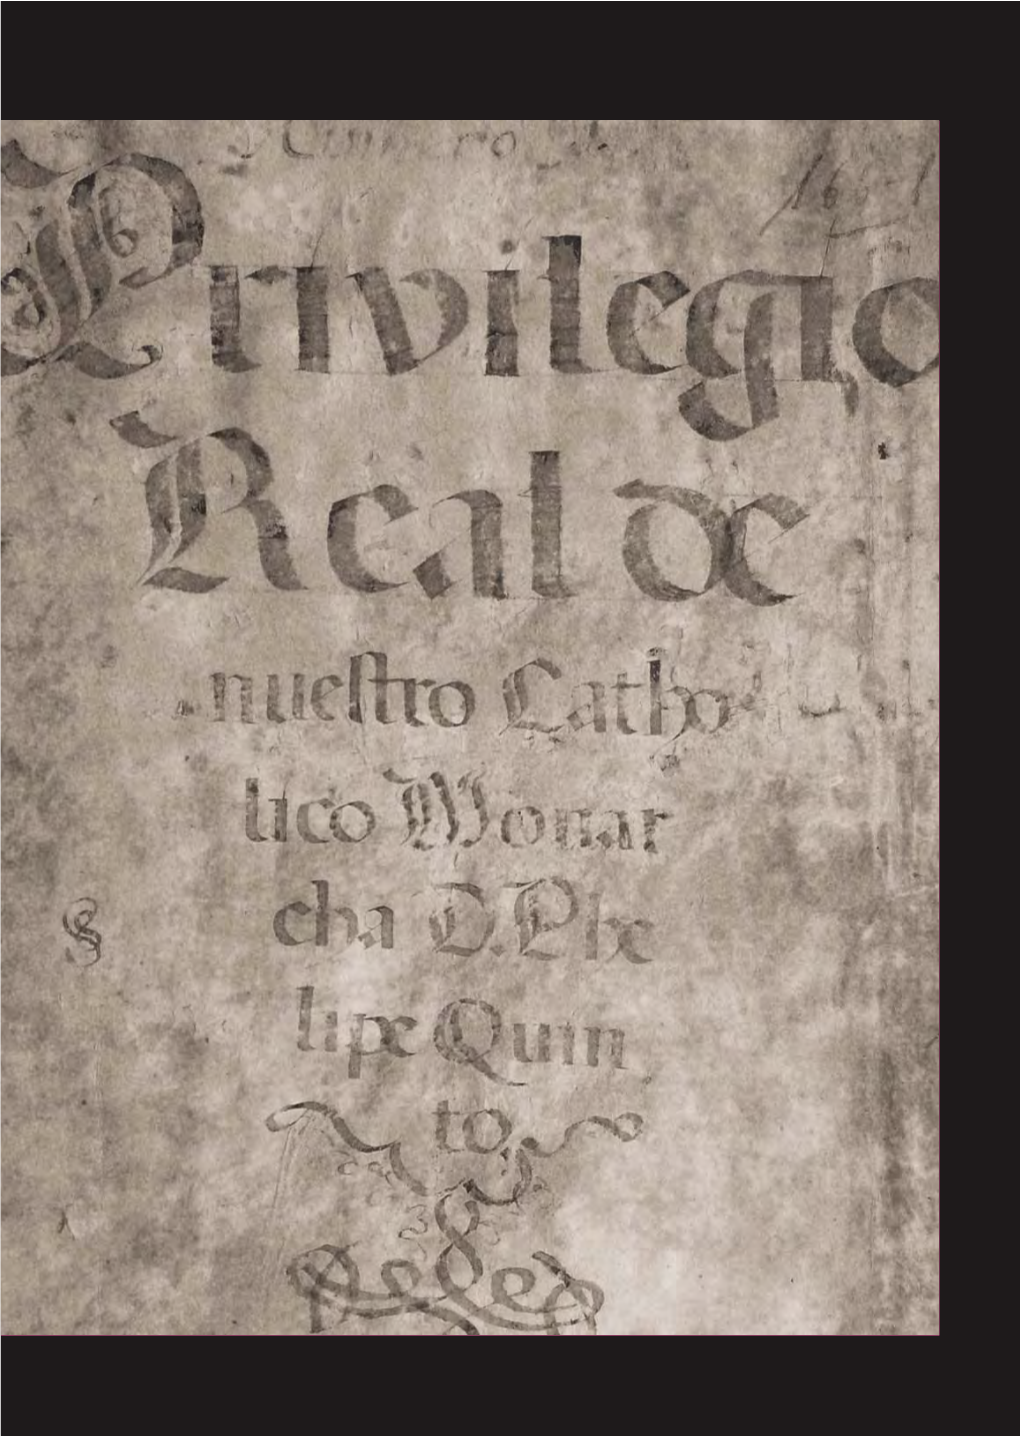 Privilegio
Real de
nuestro Catho
lico Monar
cha D. Phe
lipe Quin
to,